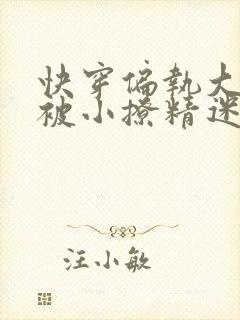 快穿偏执大
被小撩精迷
汪小敏